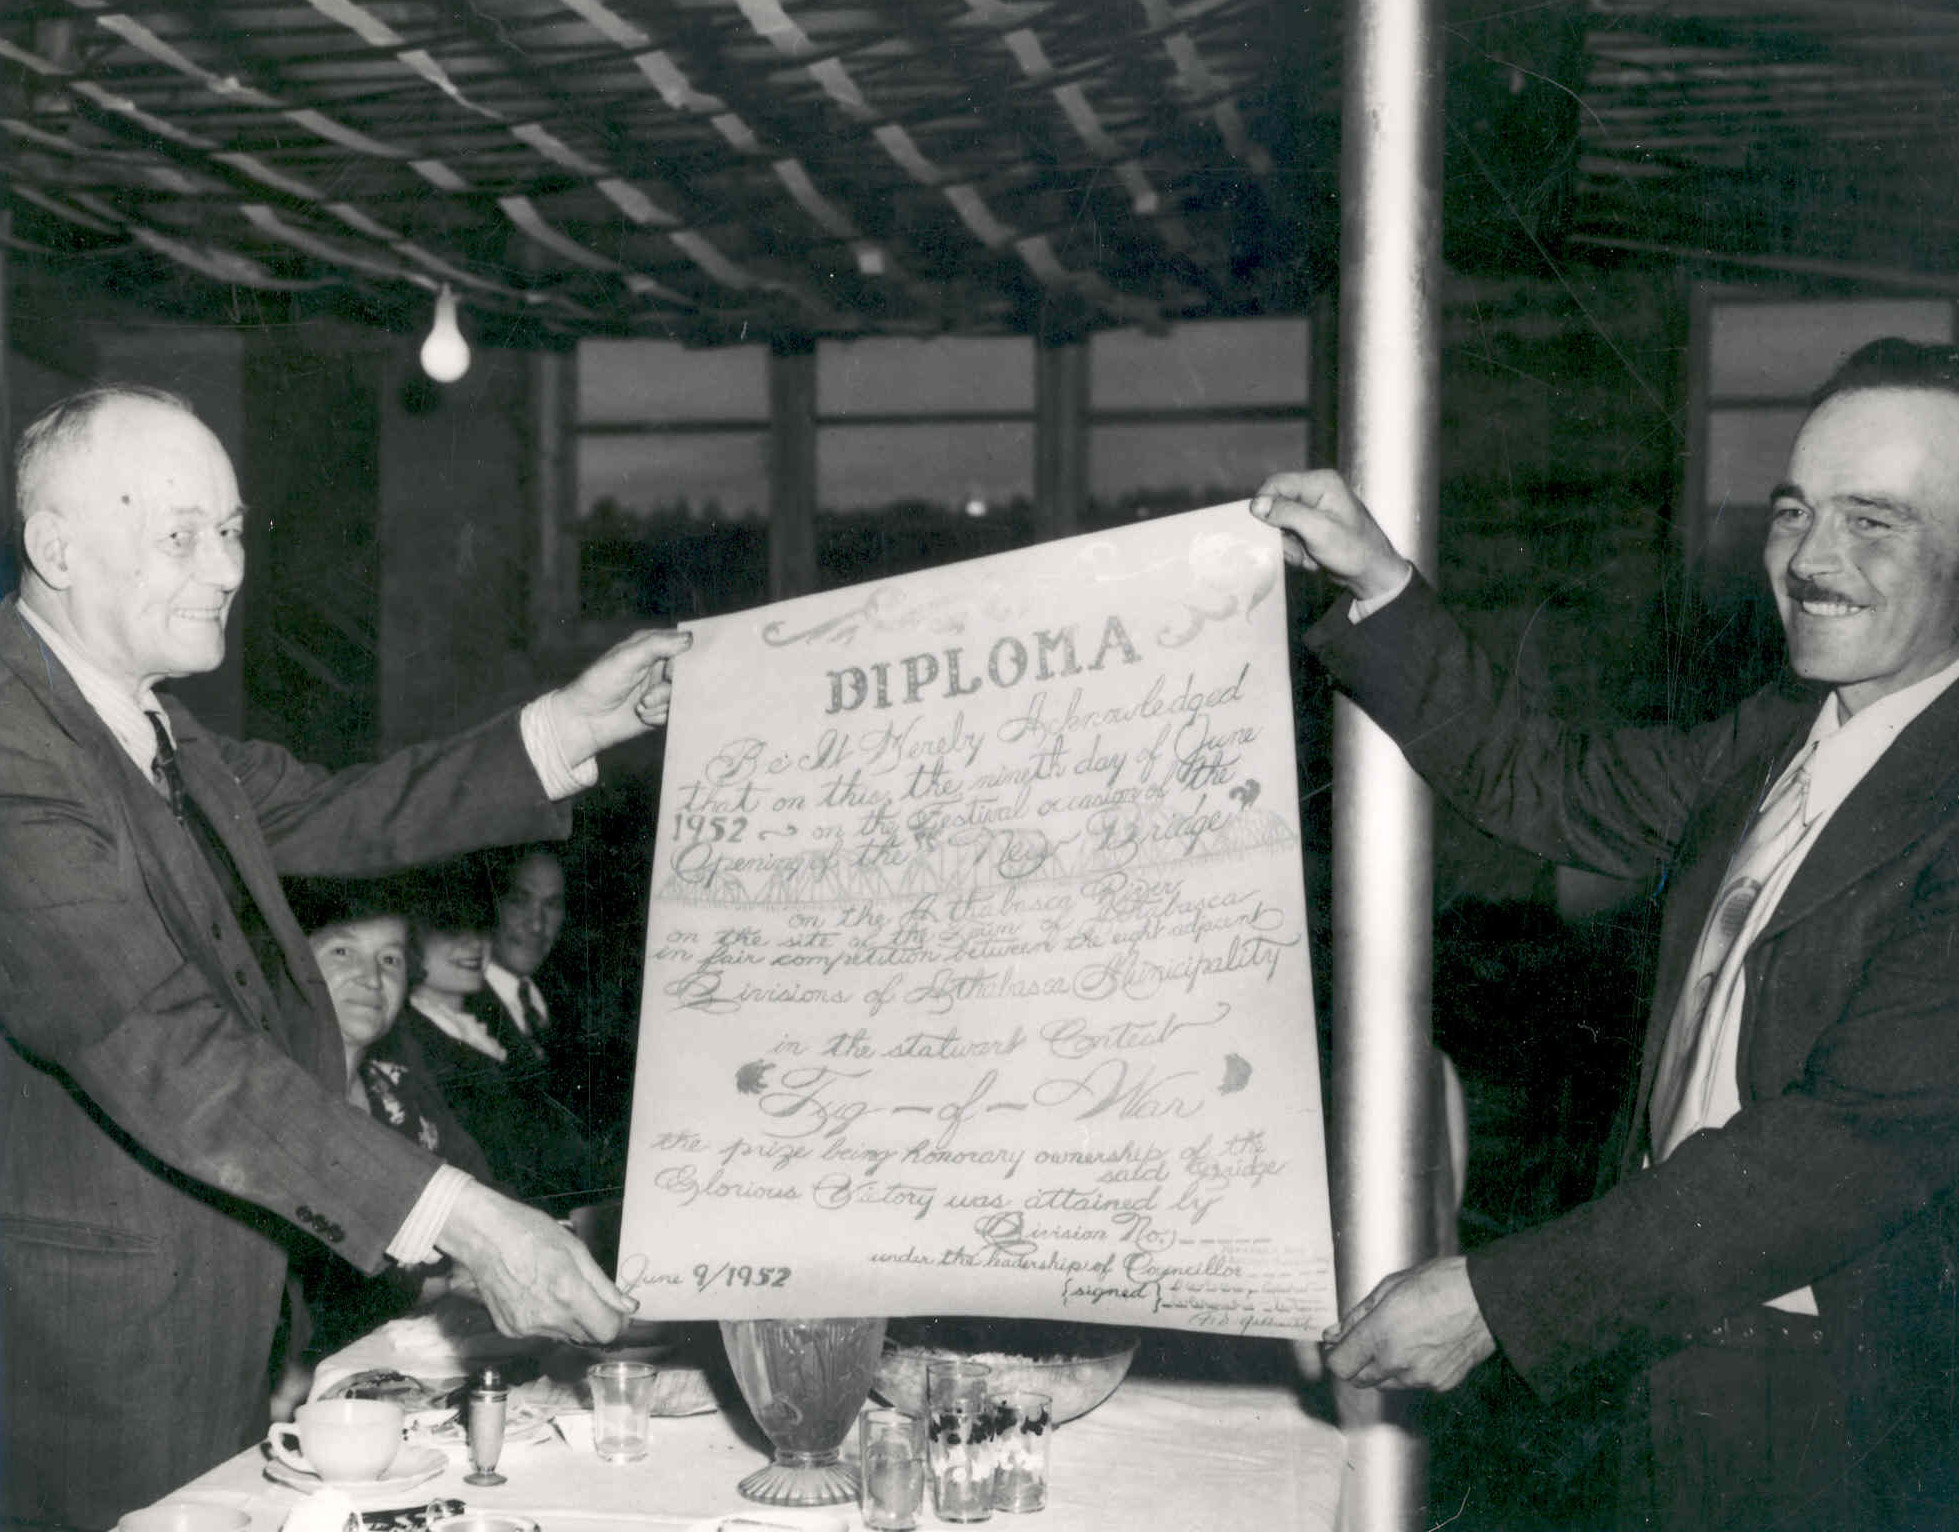 DIPLOMA
Be It Hereby Acknowledged
that on this, the nineth day of June
1952 ~ on the Festival occasion of the
Opening of the New Bridge
on the Athabasca River
on the site of the Town of Athabasca
in fair competition between the eight adjacent
Divisions of Athabasca Municipality
in the stalwart Contest
Tug-of-War
the prize being honorary ownership of the
said Bridge
Glorious Victory was attained by
Division No.
under the leadership of Councillor
June 9/1952
{signed}